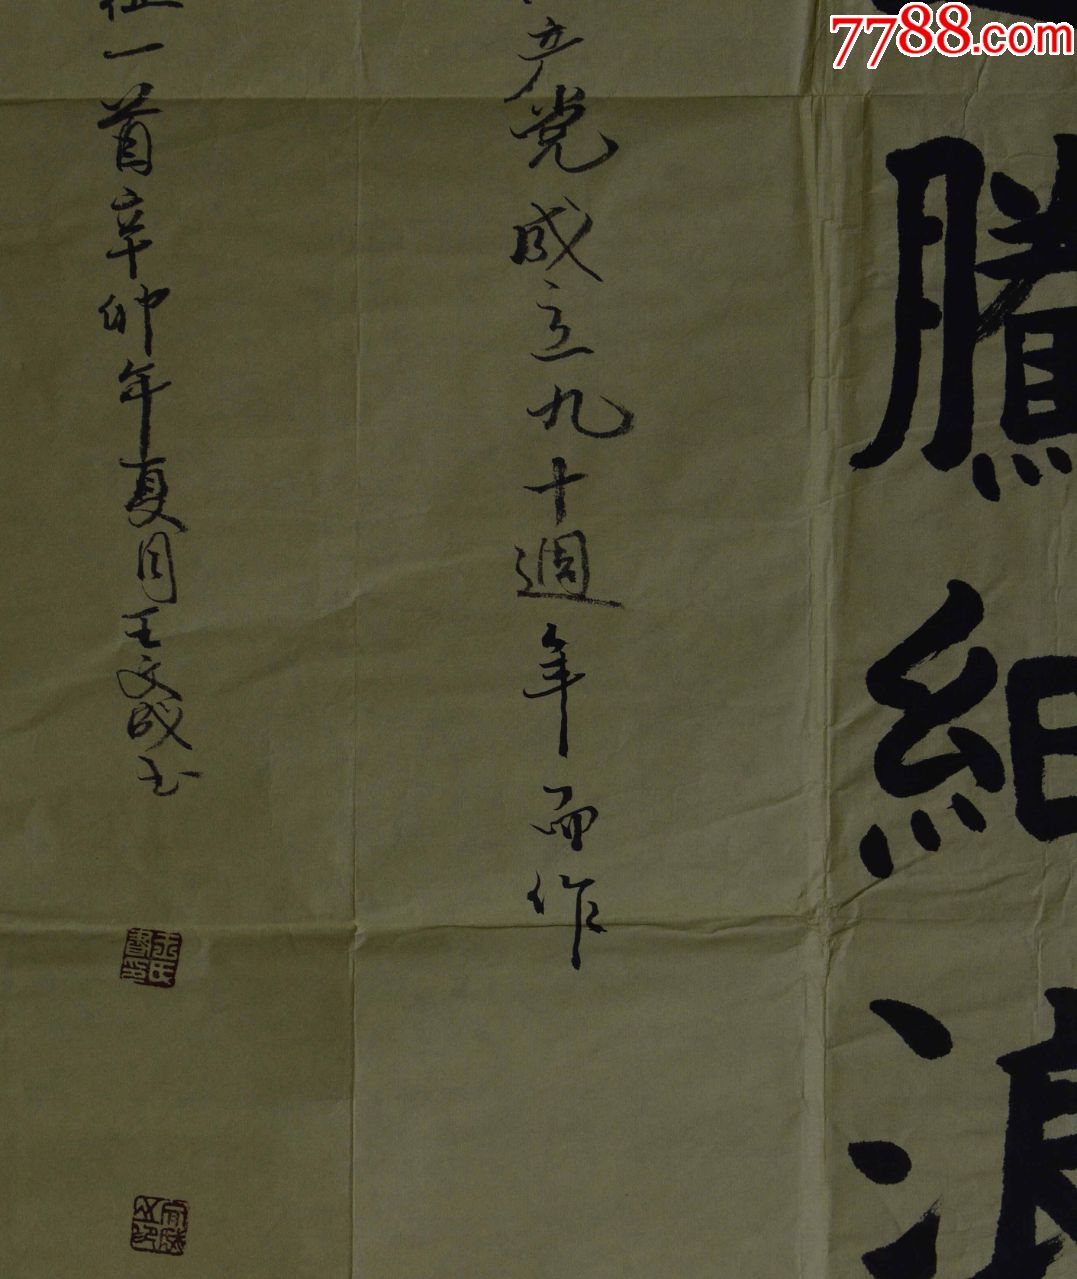 7788.com
騰細浪
产党成立九十週年而作
征一首辛卯年夏月王文成书
王氏書印